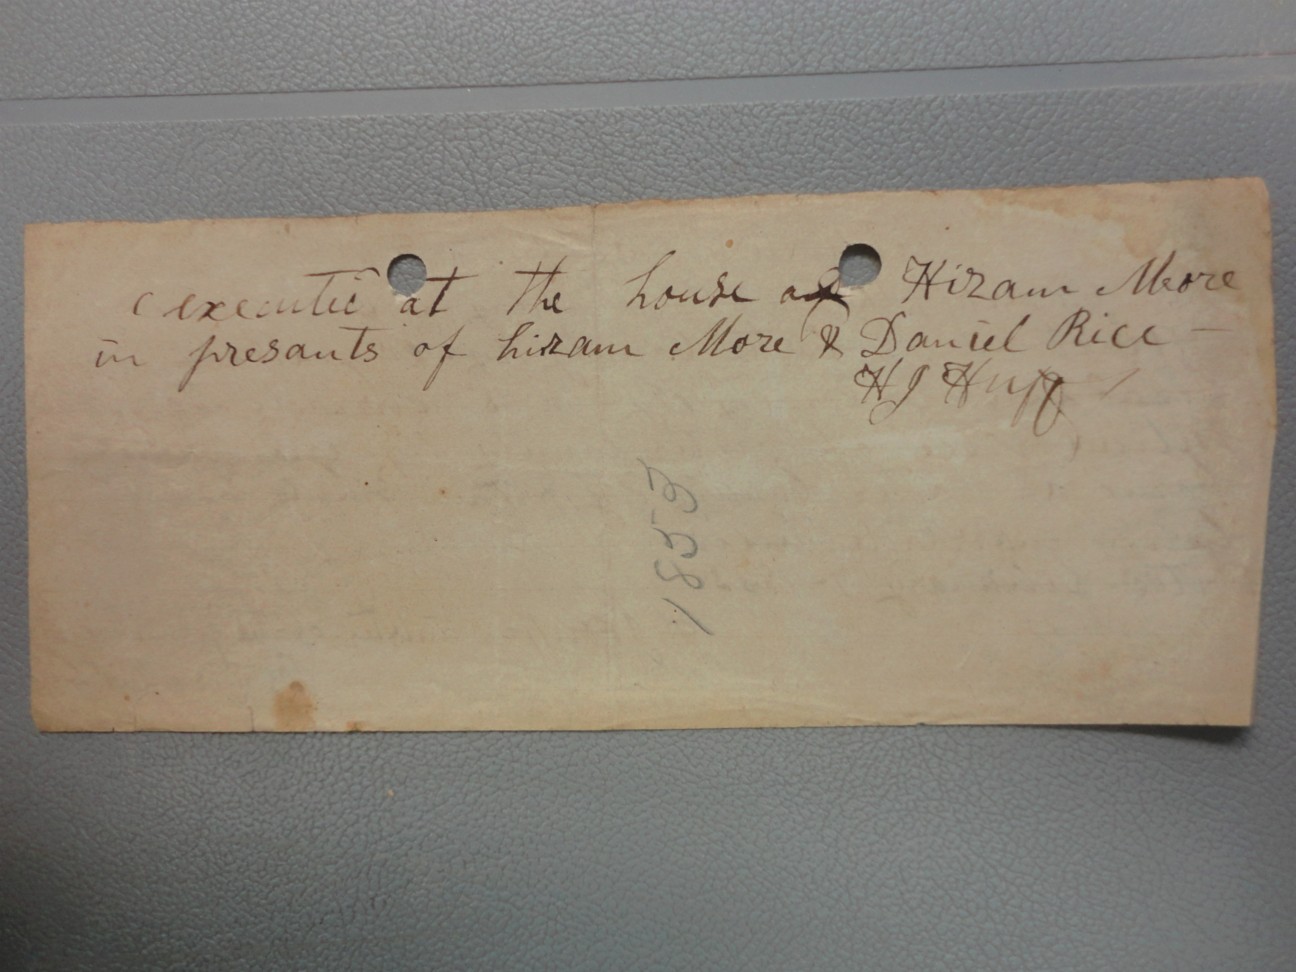 executie at the house of Hiram More
in presants of hiram More & Daniel Rice —
H J Huff
1853